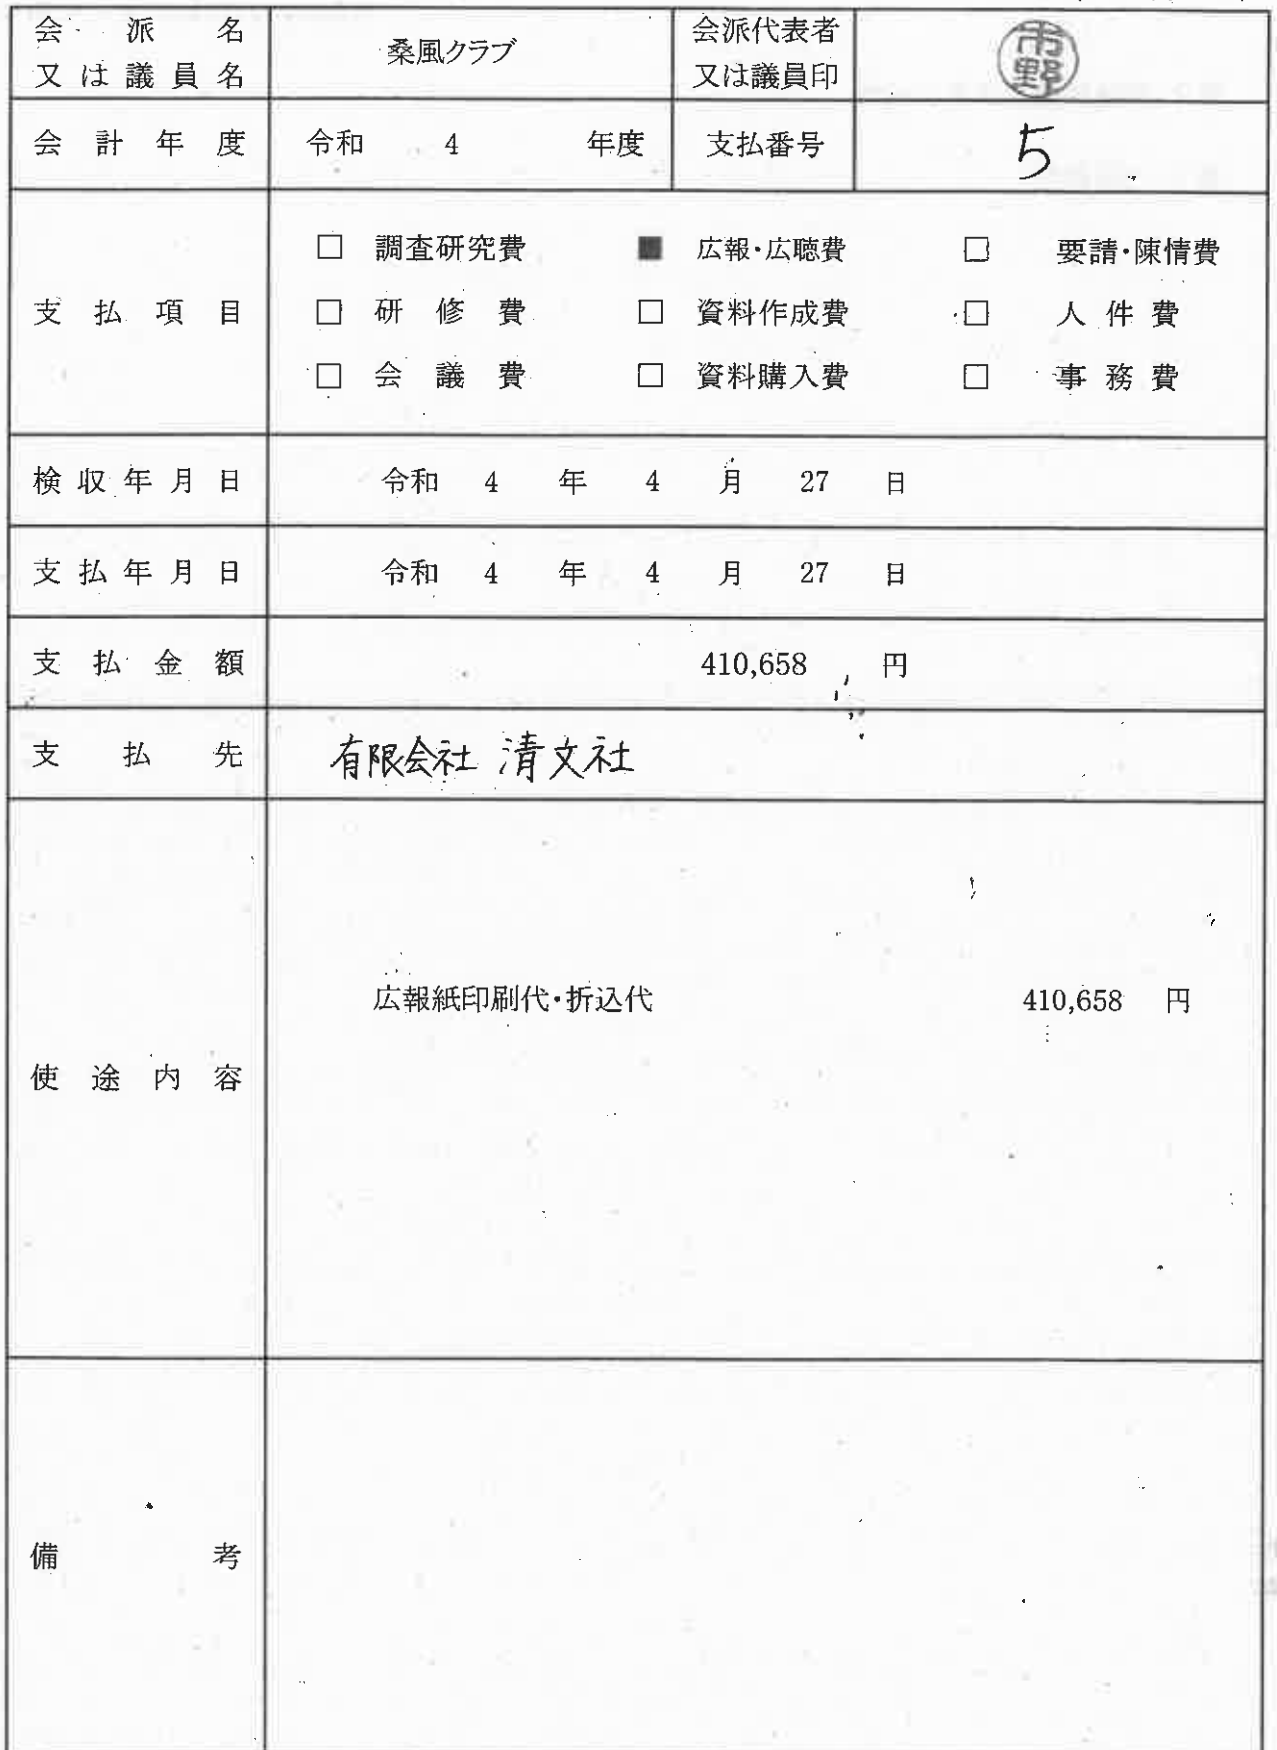 会派名 桑風クラブ 会派代表者 市野
又は議員名 又は議員印
会計年度 令和 4 年度 支払番号 5
□ 調査研究費 ■ 広報・広聴費 □ 要請・陳情費
支払項目 □ 研修費 □ 資料作成費 □ 人件費
□ 会議費 □ 資料購入費 □ 事務費
検収年月日 令和 4 年 4 月 27 日
支払年月日 令和 4 年 4 月 27 日
支払金額 410,658 円
支払先 有限会社 清文社
広報紙印刷代・折込代 410,658 円
使途内容
備考